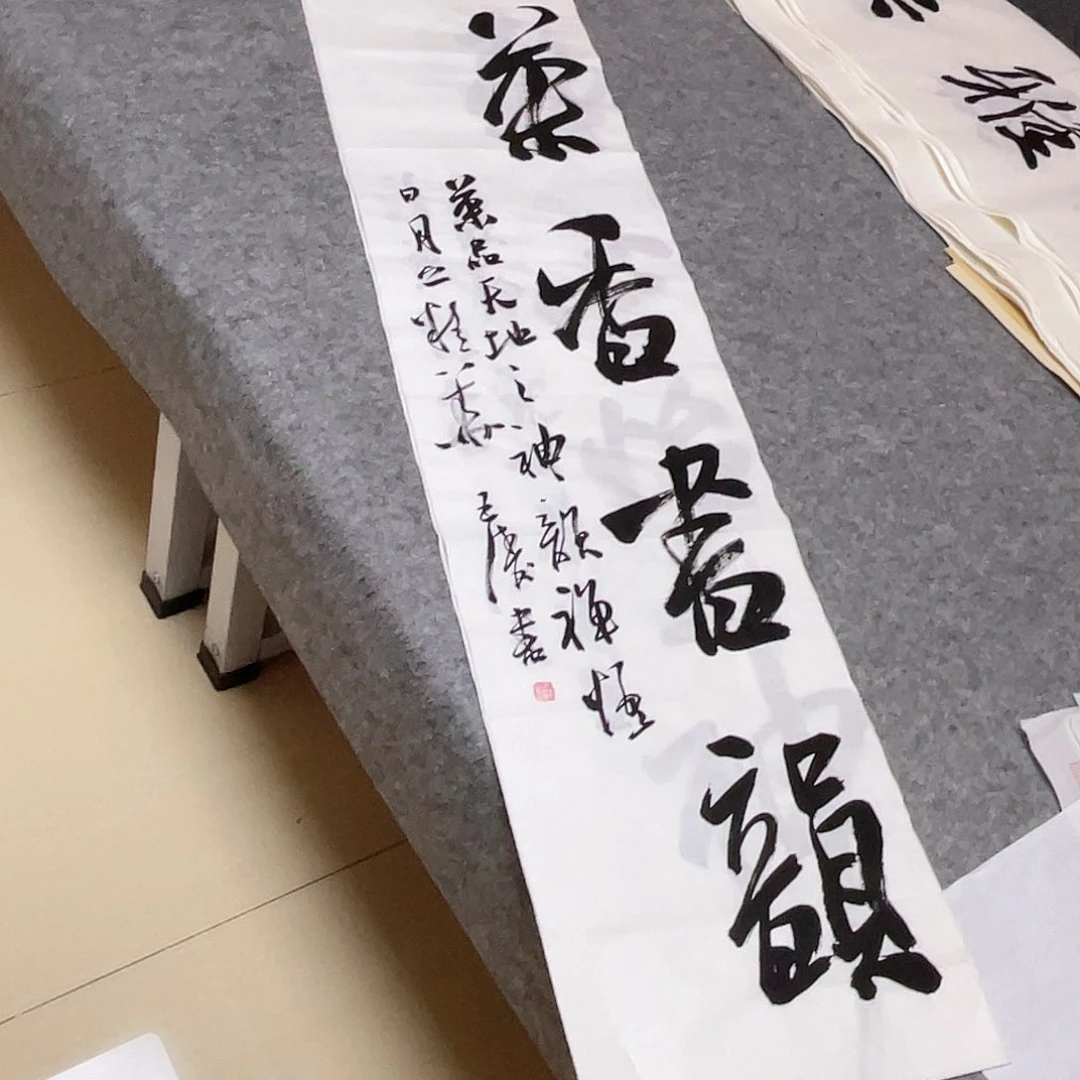 茶香書韻
茶品天地之神韻禅悟
日月之精華
書
雅